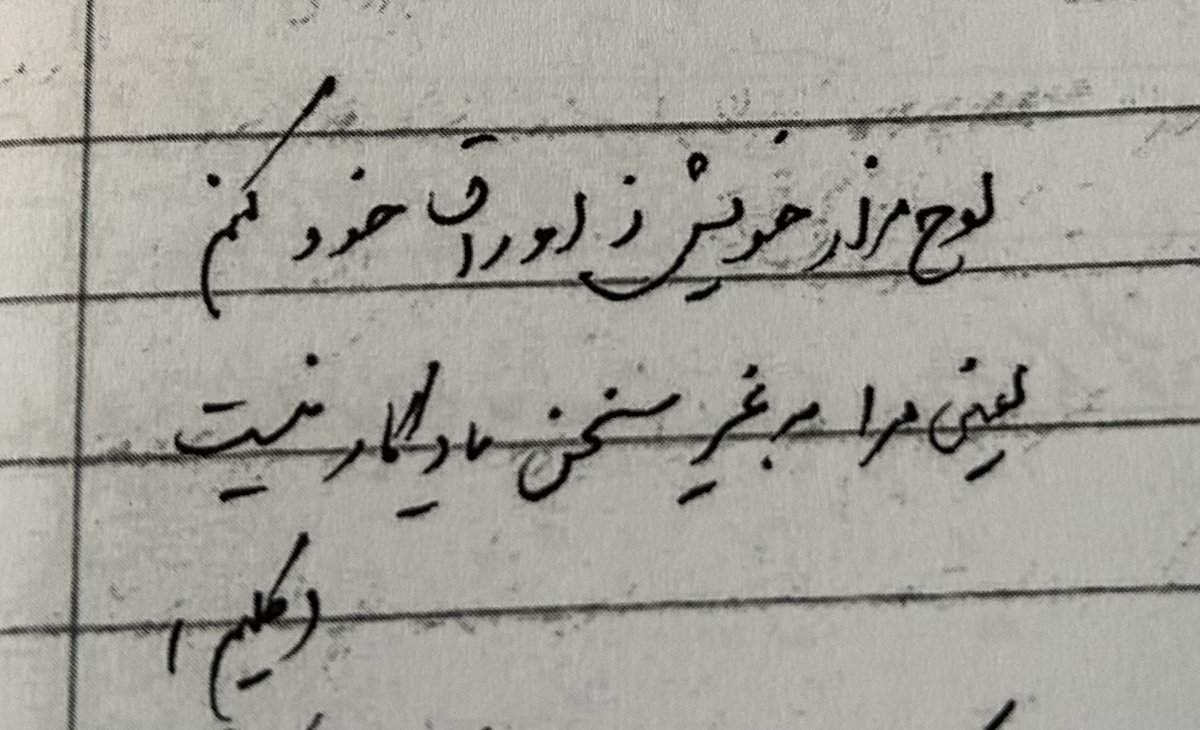 لوح مزار خویش ز اوراق خود کنم
یعنی مرا به غیر سخن یادگار نیست
(کلیم)